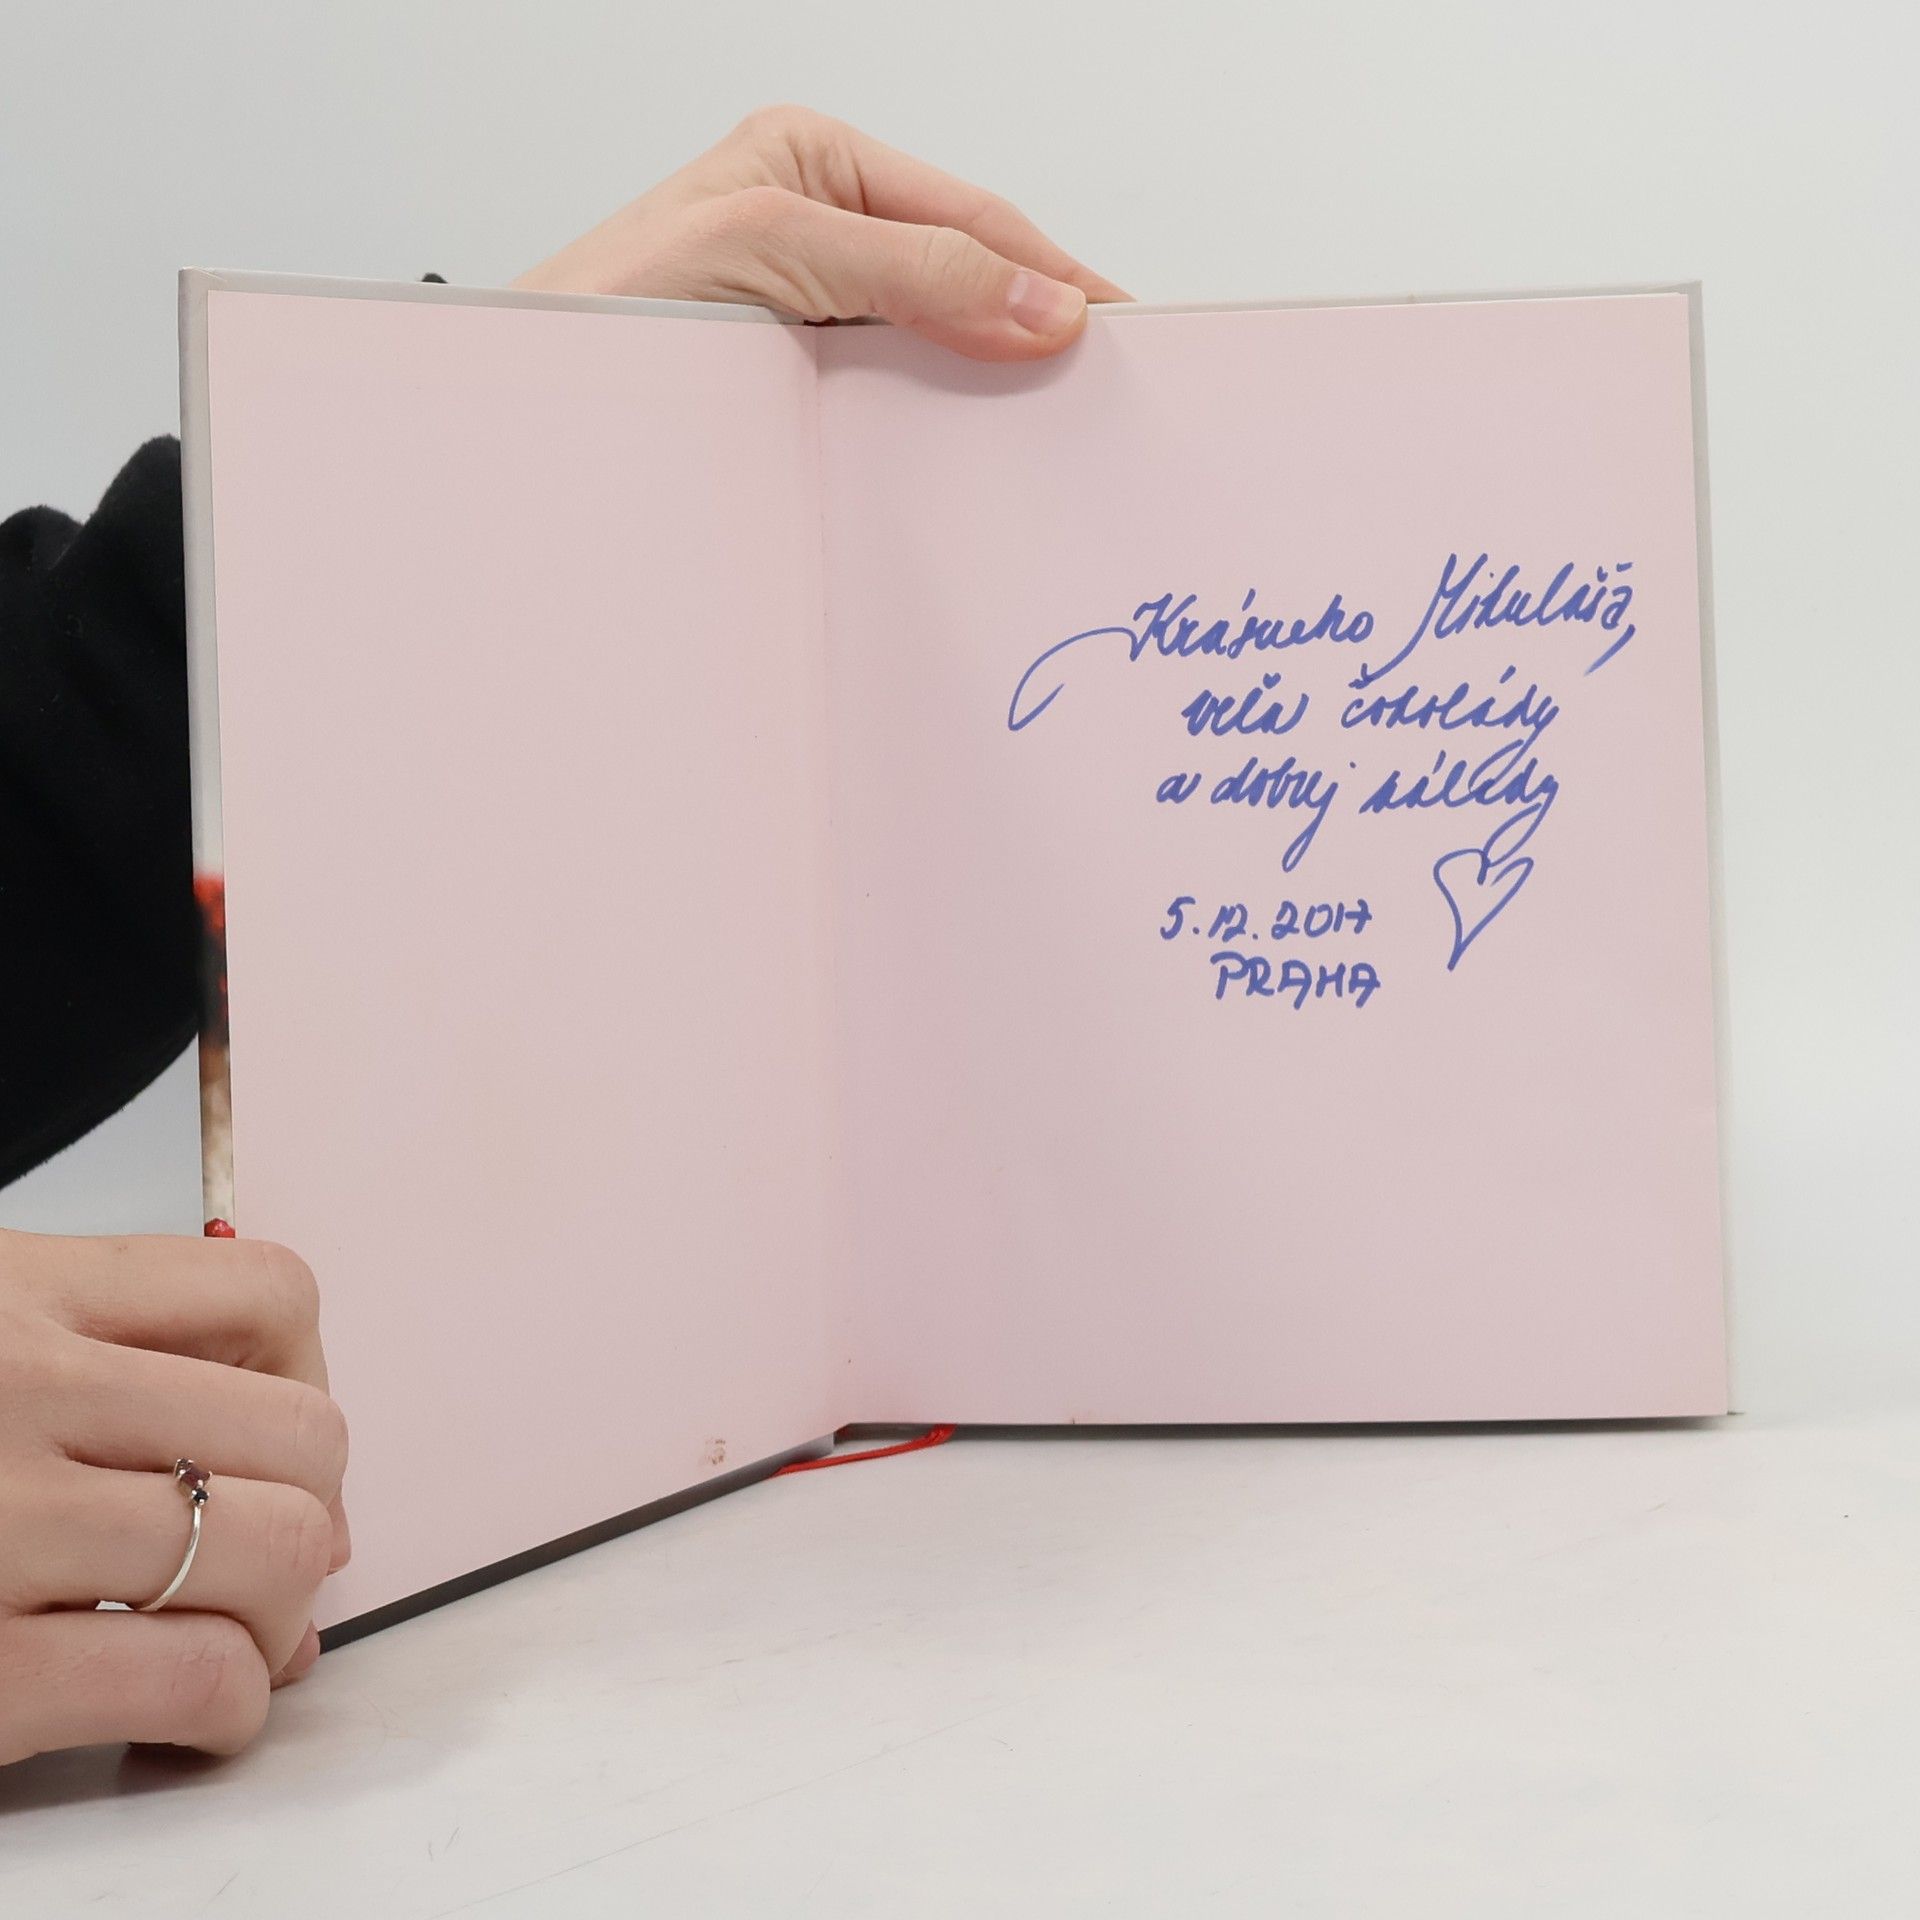 Krásneho Mikuláša,
veľa čokolády
a dobrej nálady
5.12.2017
PRAHA